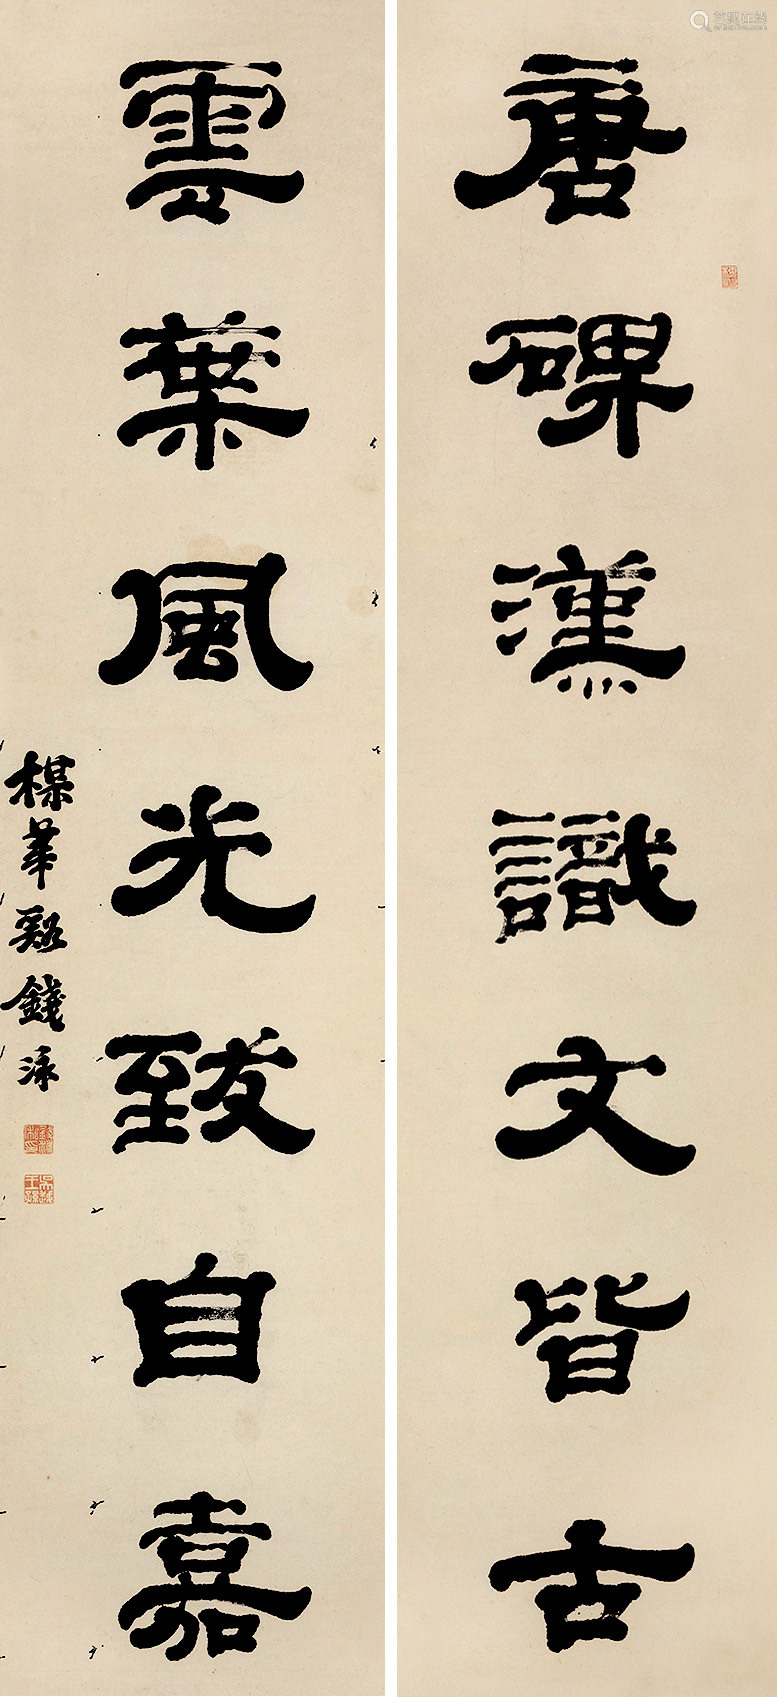 唐碑漢識文皆古
雲葉風光致自嘉
楳華谿錢泳